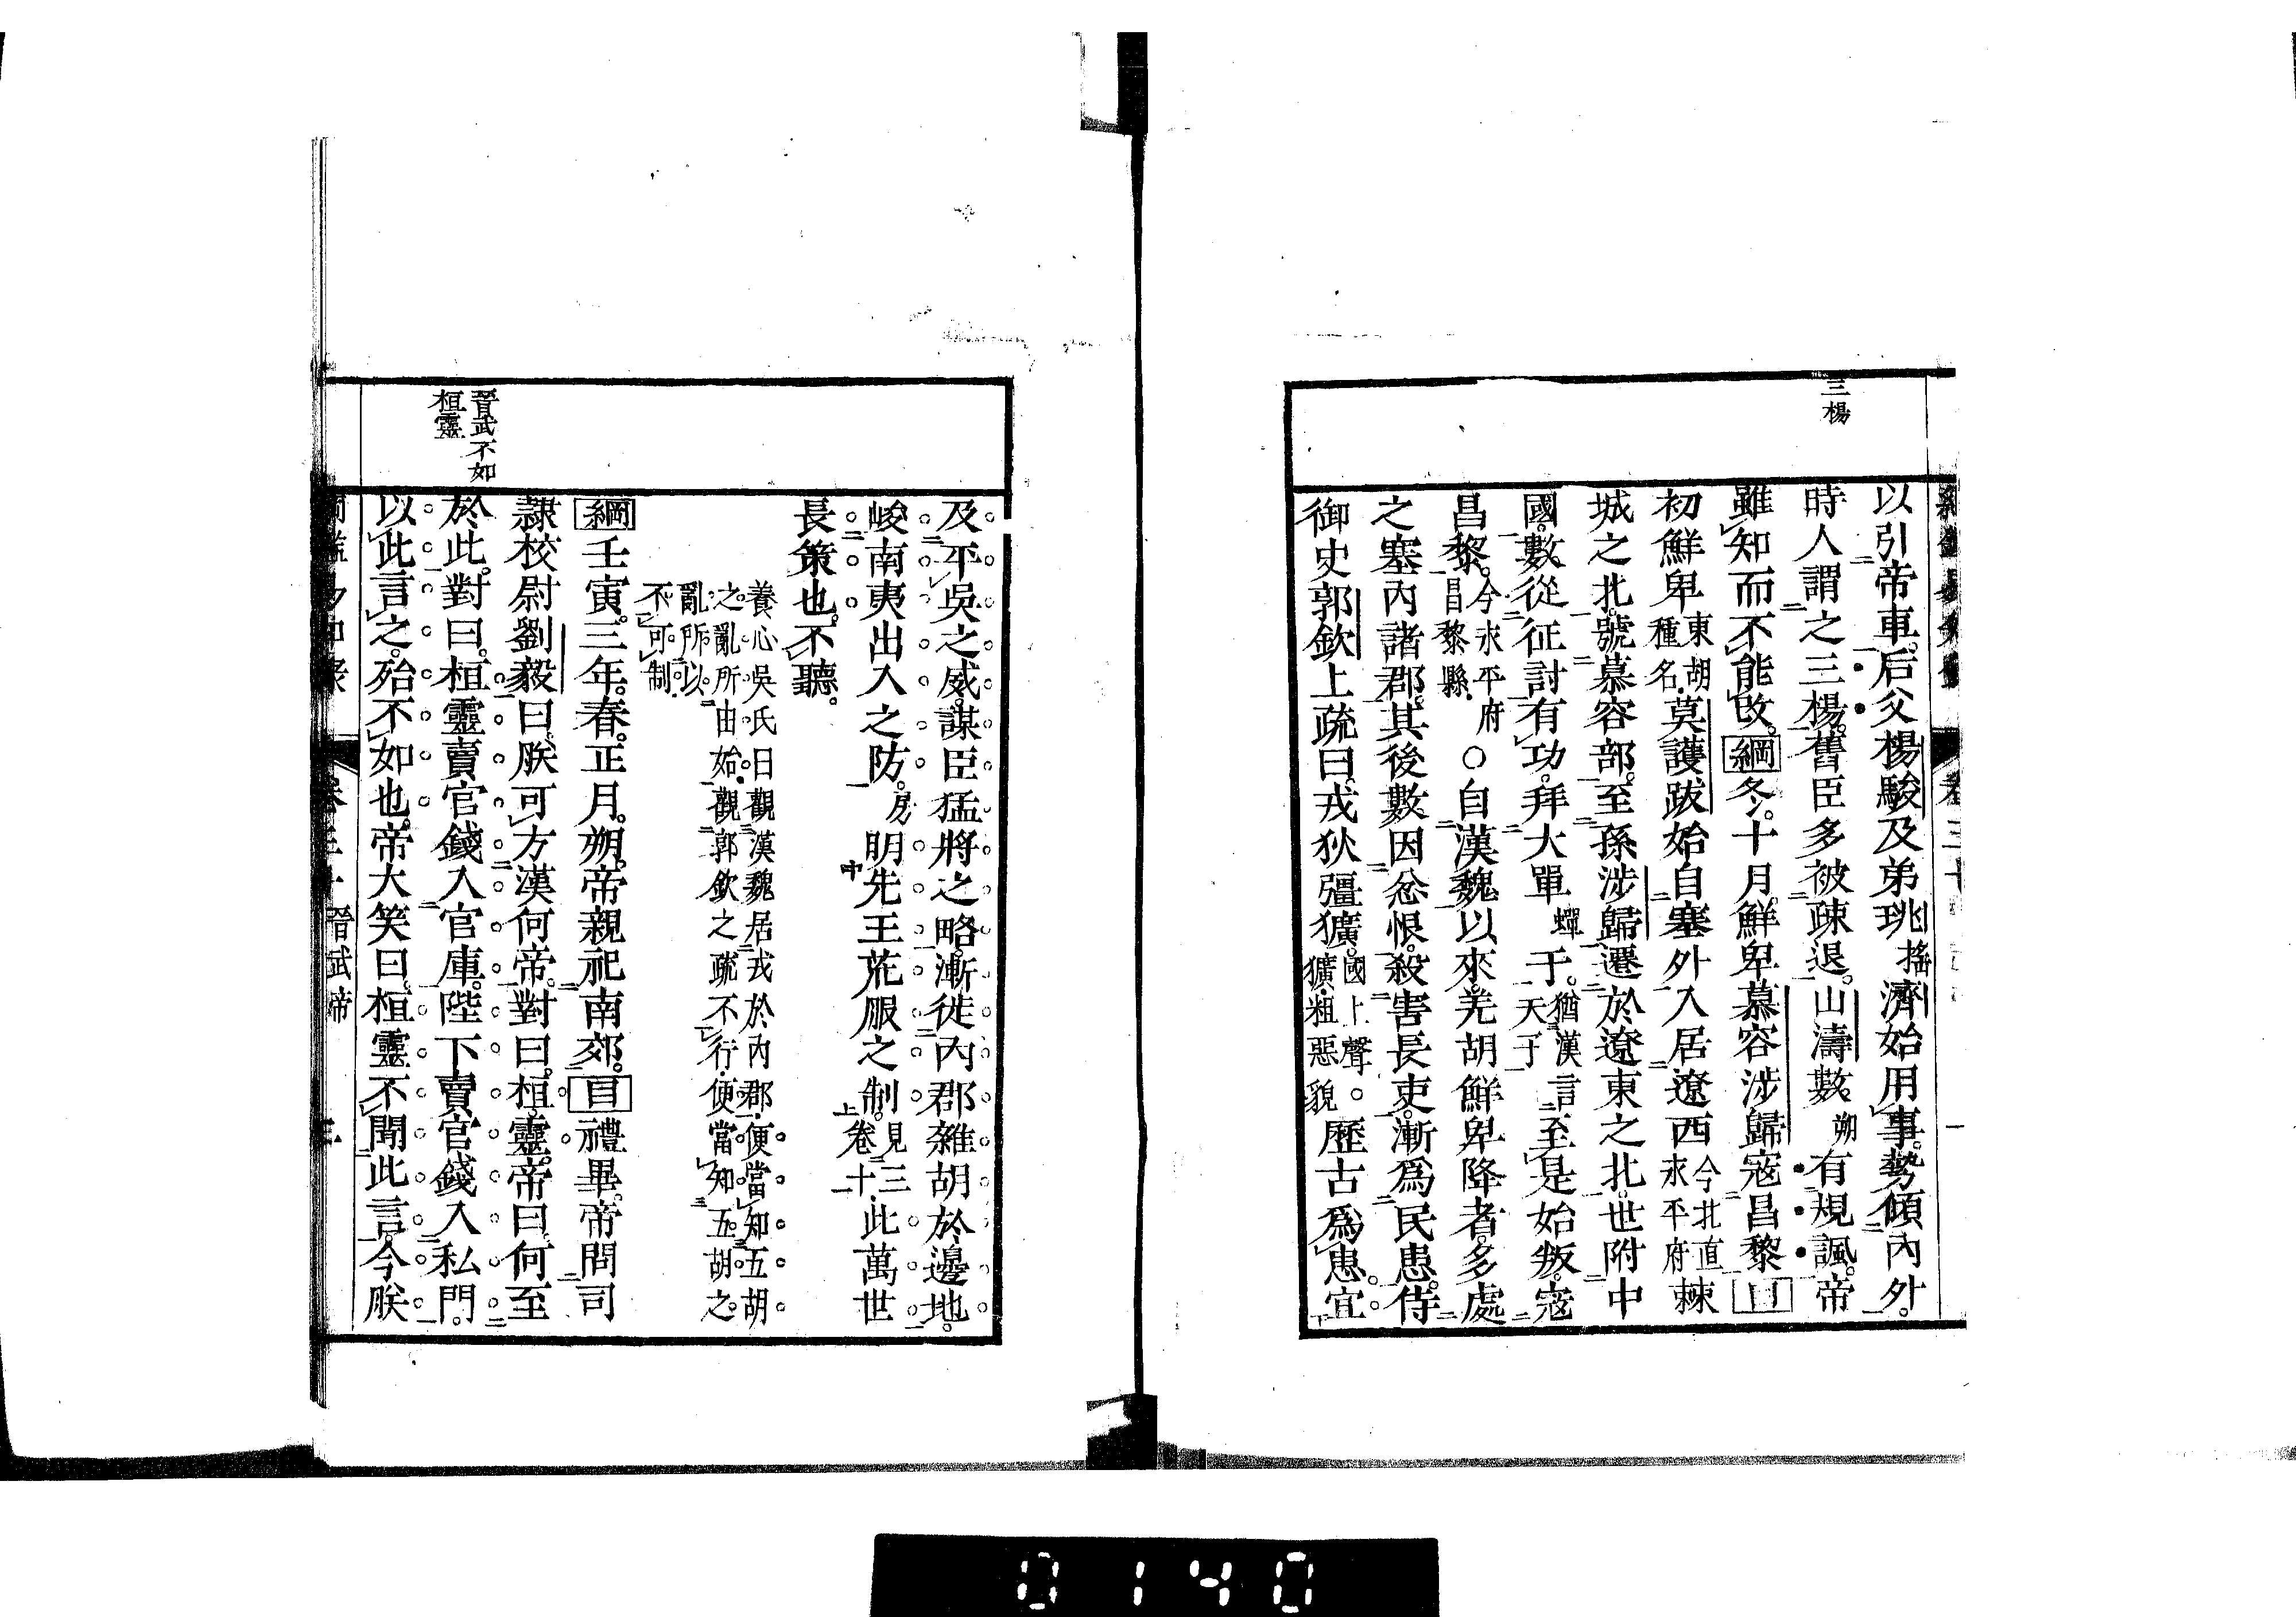 三楊
以引帝車。后父楊駿及弟珧搖濟始用事。勢傾內外。
時人謂之三楊。舊臣多被疎退。山濤數朔有規諷。帝
雖知而不能改。綱冬。十月。鮮卑慕容涉歸寇昌黎目
初鮮卑東胡種名莫護跋始自塞外入居遼西今北直永平府棘
城之北。號慕容部。至孫涉歸遷於遼東之北。世附中
國。數從征討有功。拜大單蟬于。猶漢言天子至是始叛。寇
昌黎。今永平府昌黎縣○自漢魏以來。羌胡鮮卑降者。多處
之塞內諸郡。其後數因忿恨。殺害長吏。漸爲民患。侍
御史郭欽上疏曰。戎狄彊獷。國上聲。獷粗惡貌歷古爲患。宜
及平吳之威。謀臣猛將之略。漸徙內郡雜胡於邊地。
峻南夷出入之防。房中明先王荒服之制。見三卷十上此萬世
長策也。不聽。
養心吳氏曰觀漢魏居戎於內郡便當知五胡
之亂所由始觀郭欽之疏不行便當知五胡之
亂所以
不可制
綱壬寅。三年。春。正月。朔。帝親祀南郊。目禮畢。帝問司
隷校尉劉毅曰。朕可方漢何帝。對曰。桓靈。帝曰。何至
於此。對曰。桓靈賣官錢入官庫。陛下賣官錢入私門。
以此言之。殆不如也。帝大笑曰。桓靈不聞此言。今朕
晉武不如
桓靈
晉武帝
0140